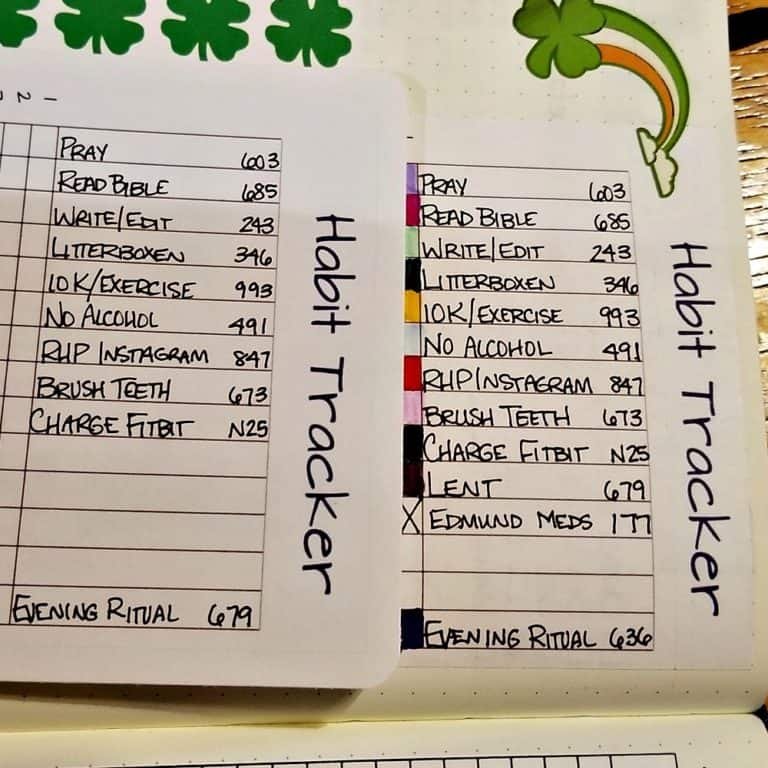 1 2
PRAY 603
READ BIBLE 685
WRITE/EDIT 243
LITTERBOXEN 346
10K/EXERCISE 993
NO ALCOHOL 491
RHP INSTAGRAM 847
BRUSH TEETH 673
CHARGE FITBIT N25
EVENING RITUAL 679
Habit Tracker
PRAY 603
READ BIBLE 685
WRITE/EDIT 243
LITTERBOXEN 346
10K/EXERCISE 993
NO ALCOHOL 491
RHP INSTAGRAM 847
BRUSH TEETH 673
CHARGE FITBIT N25
LENT 679
X EDMUND MEDS 177
EVENING RITUAL 636
Habit Tracker